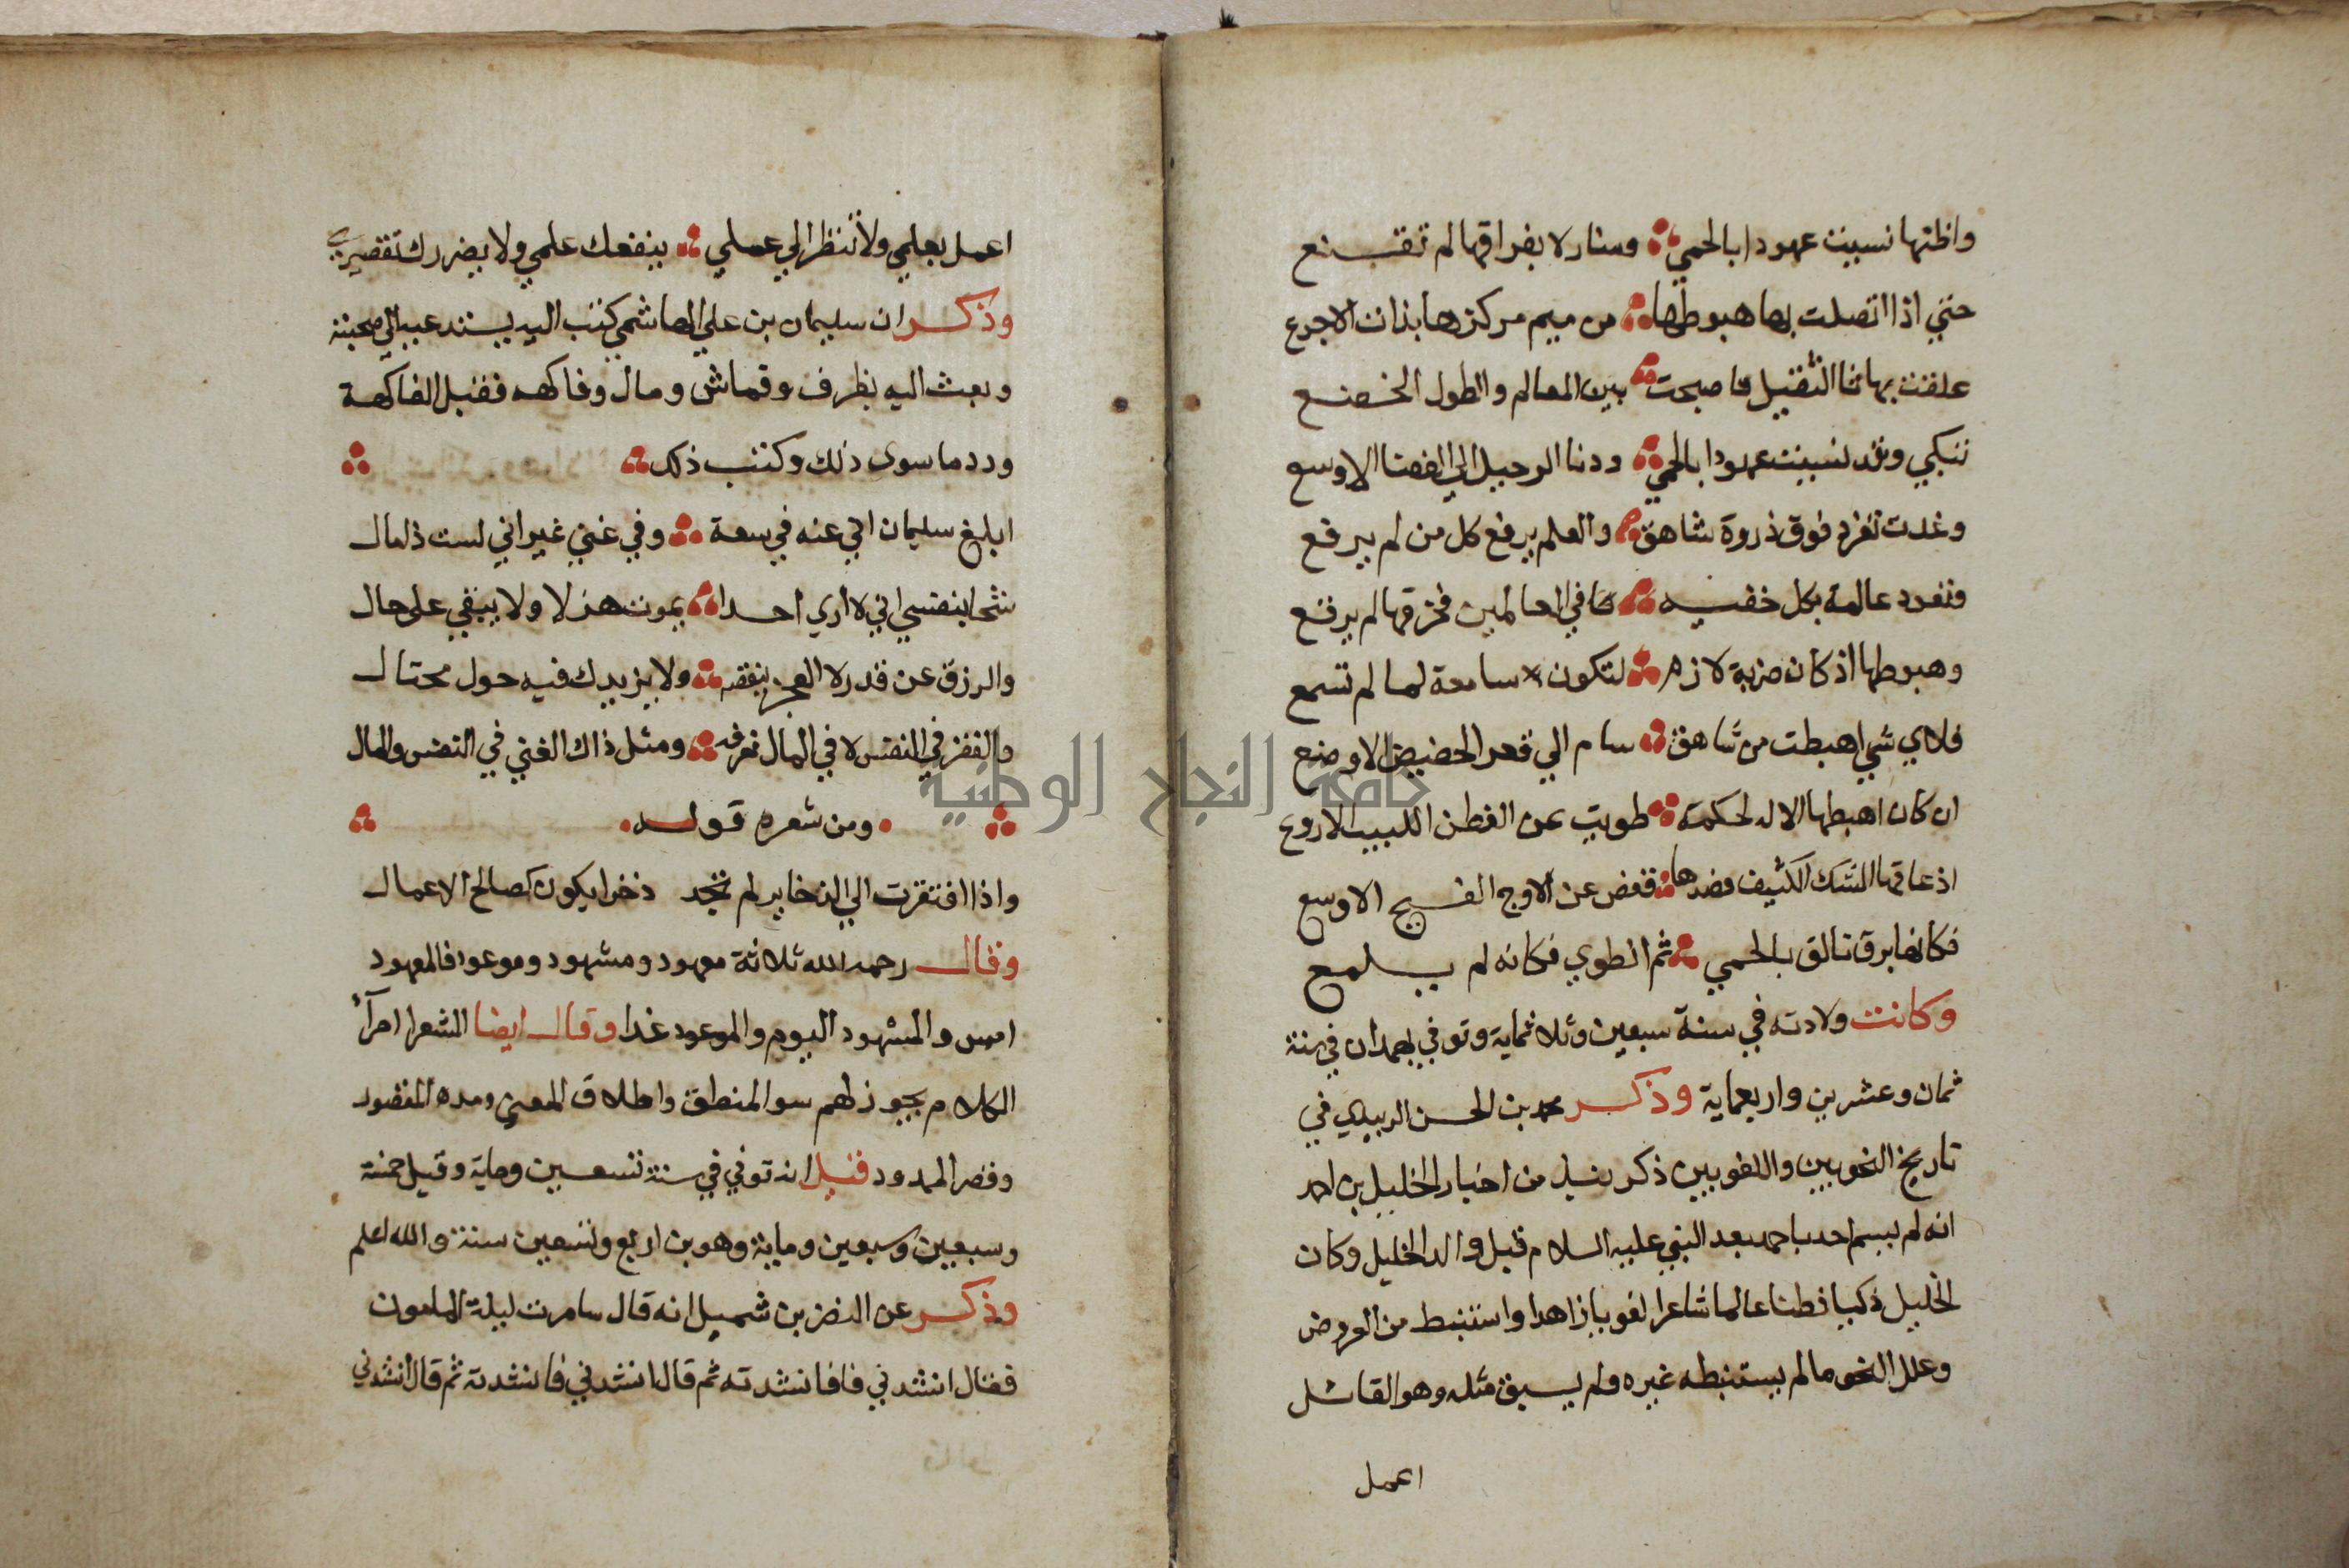 واظنها نسيت عهودا بالحمي ومنازلا بفراقها لم تقنع
حتي اذا اتصلت بها هبوطها من ميم مركزها بذات الاجرع
علقت بها ثا الثقيل فاصبحت بين المعالم والطول الخضع
تبكي وقد نسيت عهودا بالحمي ودنا الرحيل الي الفضا الاوسع
وغدت تغرد فوق ذروة شاهق والعلم يرفع كل من لم يرفع
وتعود عالمة بكل خفيه في العالمين فخرقها لم يرقع
وهبوطها اذ كان ضربة لازم لتكون سامعة لما لم تسمع
فلاي شي اهبطت من شاهق سام الي قعر الحضيض الاوضع
ان كان اهبطها الاله لحكمة طويت عن الفطن اللبيب الاروع
اذ عاقها الشك الكثيف فصدها قفص عن الاوج الفسيح الاوسع
فكانها برق تالق بالحمي ثم انطوي فكانه لم يلمع
وكانت ولادته في سنة سبعين وثلاثماية وتوفي بهمدان في سنة
ثمان وعشرين واربعماية وذكر محمد بن الحسن الزبيدي في
تاريخ النحويين واللغويين ذكر نبيل من اخبار الخليل بن احمد
انه لم يسم احد باحمد بعد النبي عليه السلام قبل والد الخليل وكان
الخليل ذكيا فطنا عالما شاعرا لغويا زاهدا واستنبط من العروض
وعلل النحو ما لم يستنبطه غيره ولم يسبق مثله وهو القائل
اعمل
اعمل بعلمي ولا تنظر الي عملي ينفعك علمي ولا يضررك تقصيري
وذكر ان سليمان بن علي الهاشمي كتب اليه يستدعيه الي صحبته
وبعث اليه بظرف وقماش ومال وفاكهه فقبل الفاكهة
ورد ما سوى ذلك وكتب ذلك
ابلغ سليمان اني عنه في سعة وفي غني غير اني لست ذا مال
شحا بنفسي اني لا اري احدا يموت هزلا ولا يبقي على حال
والرزق عن قدر لا العجز ينقصه ولا يزيدك فيه حول محتال
والفقر في النفس لا في المال نعرفه ومثل ذاك الغني في النفس والمال
ومن شعره قوله
واذا افتقرت الي الذخاير لم تجد ذخرا يكون كصالح الاعمال
وقال رحمه الله ثلاثة معهود ومشهود وموعود فالمعهود
امس والمشهود اليوم والموعود غدا وقال ايضا الشعرا امرآء
الكلام يجوز لهم سو المنطق واطلاق المعني ومده المقصود
وقصر الممدود فقيل انه توفي في سنة تسعين وماية وقيل خمسة
وسبعين وسبعين وماية وهو بن اربع وتسعين سنة والله اعلم
وذكر عن النضر بن شميل انه قال سامرت ليلة المامون
فقال انشدني فافانشدته ثم قال انشدني فانشدته ثم قال انشدني
جامعة النجاح الوطنية